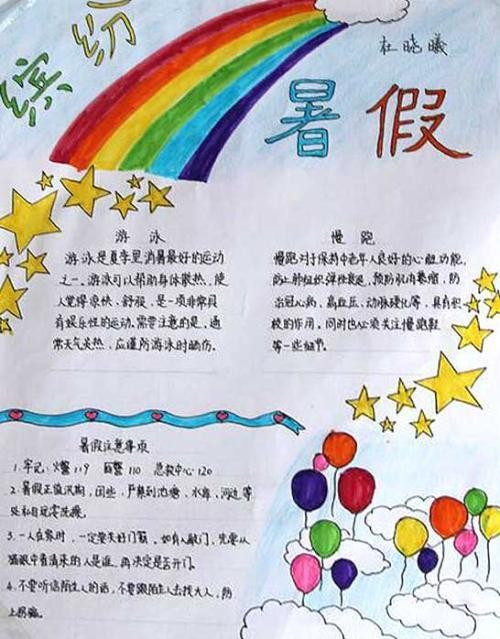 缤纷
杜晓曦
暑假
游 泳
游泳是夏季里消暑最好的运动
之一。游泳可以帮助身体散热,使
人觉得凉快、舒服,是一项非常具
有娱乐性的运动。需要注意的是,通
常天气炎热,应谨防游泳时晒伤。
慢 跑
慢跑对于保持中老年人良好的心脏功能,
防止肺组织弹性衰退,预防肌肉萎缩,防
治冠心病、高血压、动脉硬化等,具有积
极的作用。同时也必须关注慢跑鞋
等一些细节。
暑假注意事项
1.牢记:火警119 匪警110 急救中心120
2.暑假正值汛期,因此,严禁到池塘,水库,河边等
处私自玩耍洗澡。
3.一人在家时,一定要关好门窗。如有人敲门,先要从
猫眼中看清来的人是谁,再决定是否开门。
4.不要听信陌生人的话,不要跟陌生人去找大人,防
上拐骗。